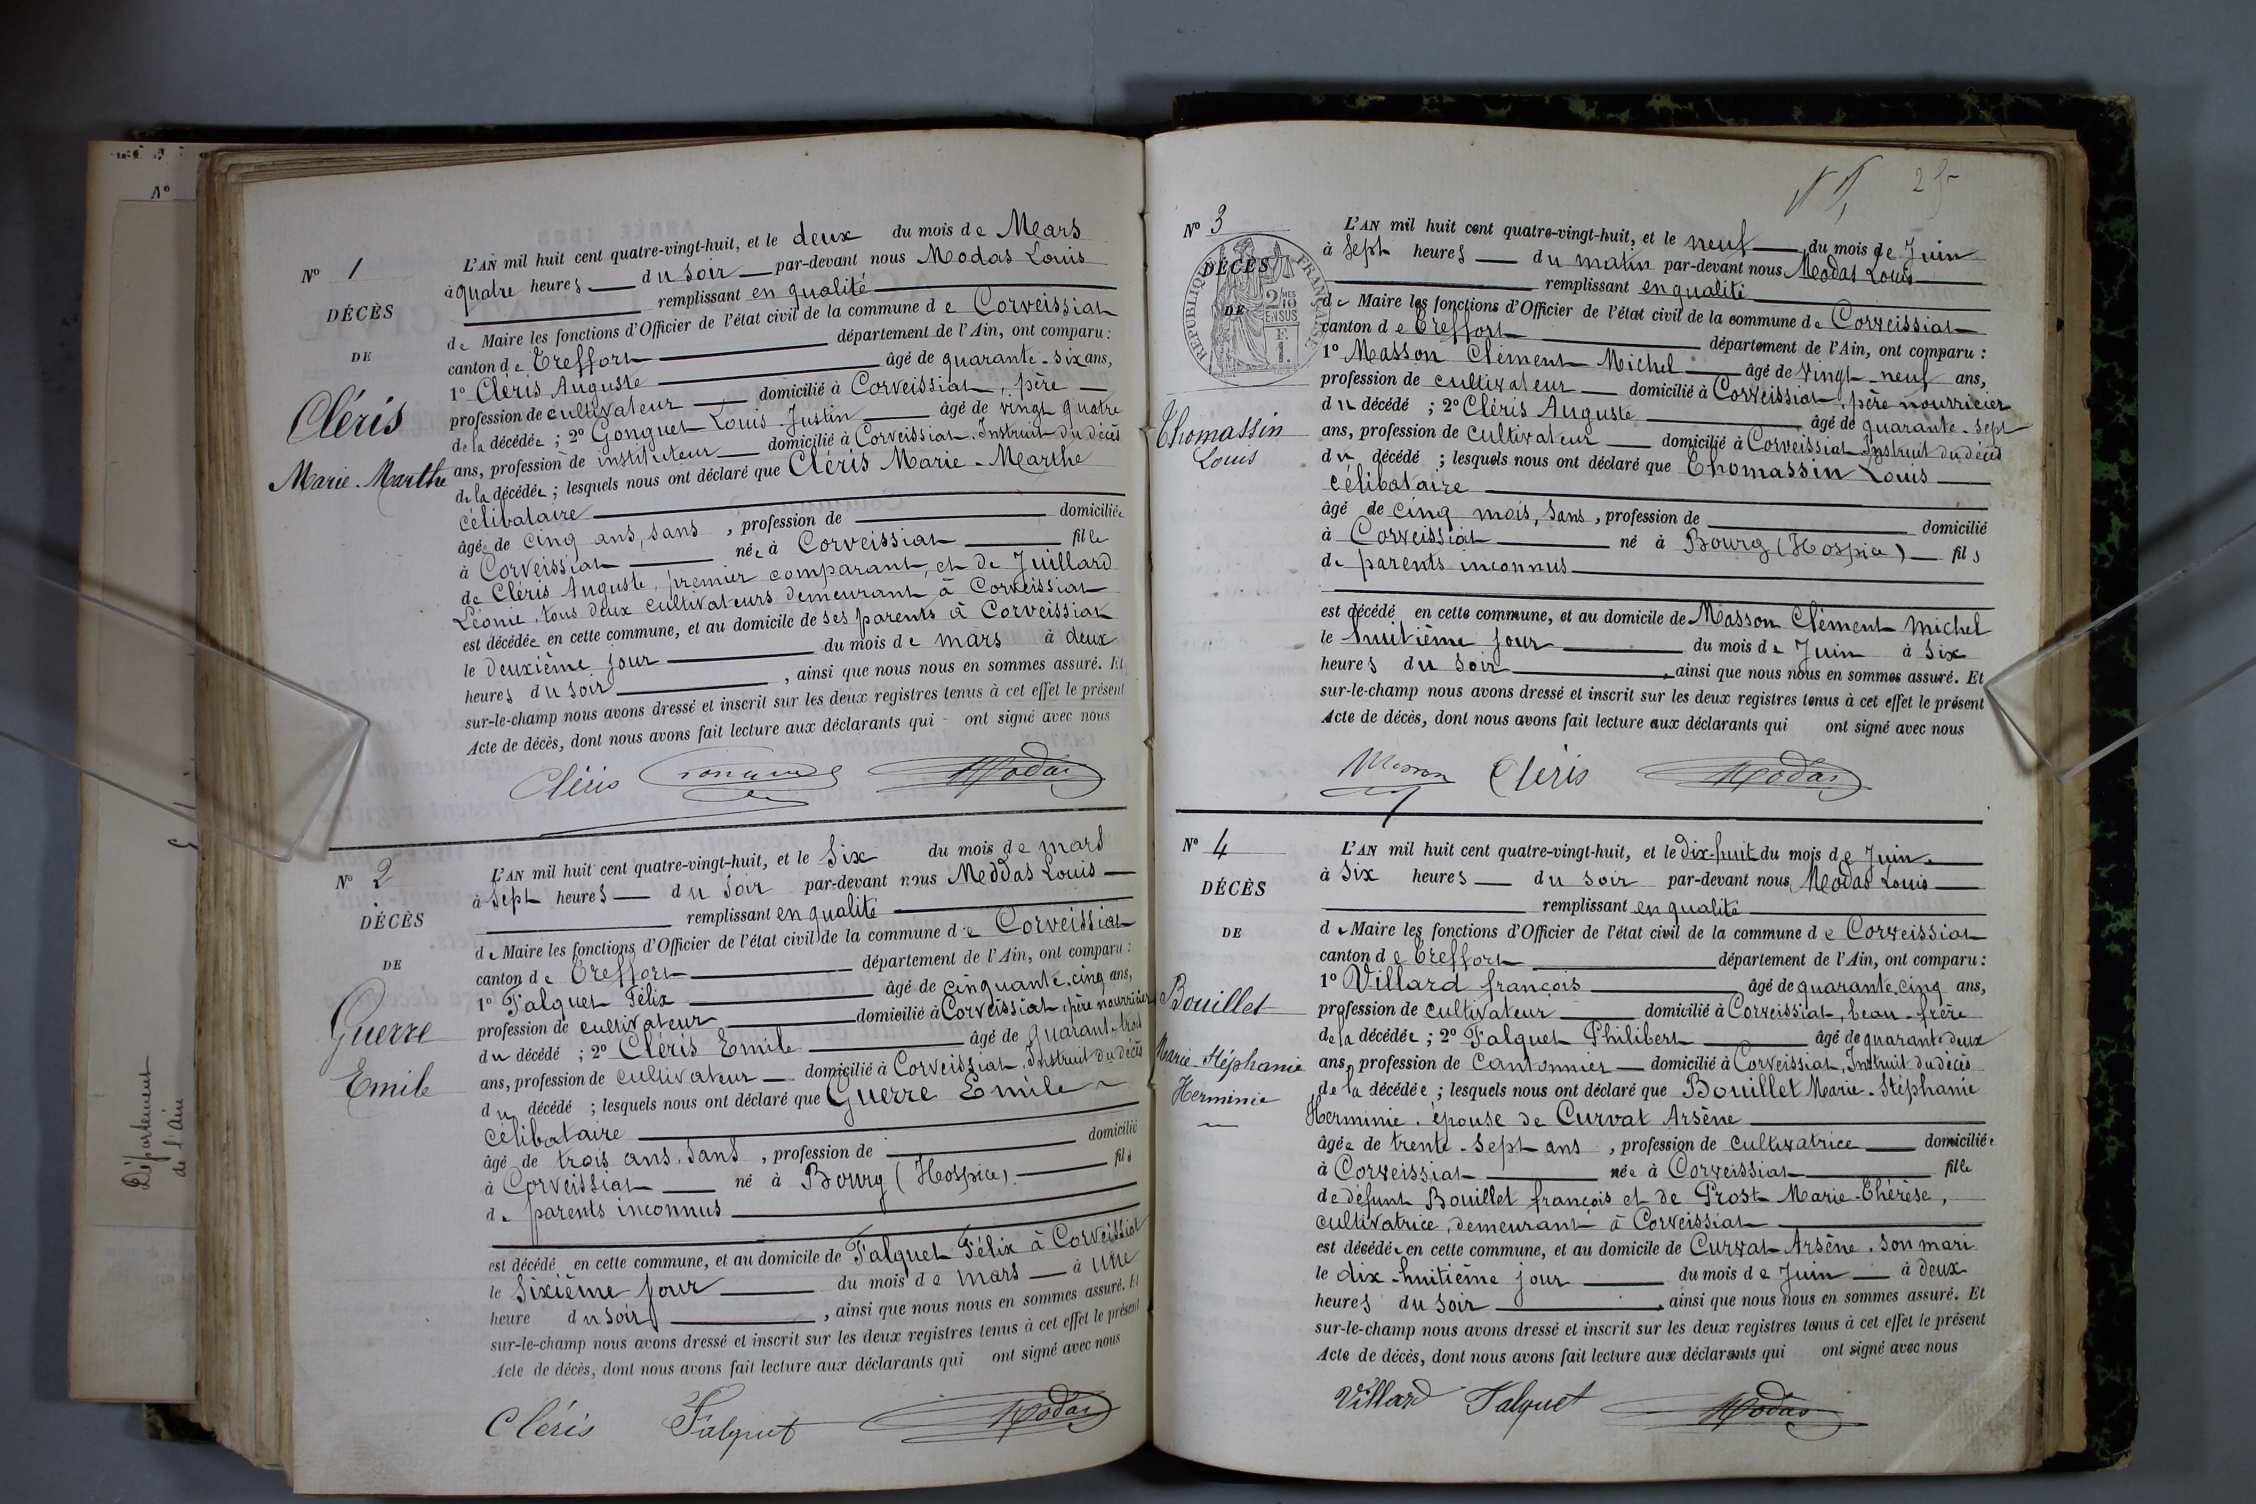 Nº 1
DÉCÈS
DE
Cléris
Marie-Marthe
L'AN mil huit cent quatre-vingt-huit, et le deux du mois de Mars
à quatre heures du soir par-devant nous Modas Louis
remplissant en qualité
de Maire les fonctions d'Officier de l'état civil de la commune de Corveissiat
canton de Treffort département de l'Ain, ont comparu :
1º Cléris Auguste âgé de quarante-six ans,
profession de cultivateur domicilié à Corveissiat, père
de la décédée ; 2º Gonguet Louis-Justin âgé de vingt quatre
ans, profession de instituteur domicilié à Corveissiat. Instruit du décès
de la décédée ; lesquels nous ont déclaré que Cléris Marie-Marthe
célibataire
âgée de cinq ans, sans, profession de domiciliée
à Corveissiat née à Corveissiat fille
de Cléris Auguste, premier comparant, et de Juillard
Léonie, tous deux cultivateurs demeurant à Corveissiat
est décédée en cette commune, et au domicile de ses parents à Corveissiat
le deuxième jour du mois de mars à deux
heures du soir, ainsi que nous nous en sommes assuré. Et
sur-le-champ nous avons dressé et inscrit sur les deux registres tenus à cet effet le présent
Acte de décès, dont nous avons fait lecture aux déclarants qui ont signé avec nous
Cléris Modas
Nº 2
DÉCÈS
DE
Guerre
Emile
L'AN mil huit cent quatre-vingt-huit, et le six du mois de mars
à sept heures du soir par-devant nous Meddas Louis
remplissant en qualité
de Maire les fonctions d'Officier de l'état civil de la commune de Corveissiat
canton de Treffort département de l'Ain, ont comparu :
1º Falquet Félix âgé de cinquante-cinq ans,
profession de cultivateur domicilié à Corveissiat, père nourricier
du décédé ; 2º Cléris Emile âgé de quarante-trois
ans, profession de cultivateur domicilié à Corveissiat. Instruit du décès
du décédé ; lesquels nous ont déclaré que Guerre Emile
célibataire
âgé de trois ans, sans, profession de domicilié
à Corveissiat né à Bourg (Hospice) fils
de parents inconnus
est décédé en cette commune, et au domicile de Falquet Félix à Corveissiat
le sixième jour du mois de mars à une
heure du soir, ainsi que nous nous en sommes assuré. Et
sur-le-champ nous avons dressé et inscrit sur les deux registres tenus à cet effet le présent
Acte de décès, dont nous avons fait lecture aux déclarants qui ont signé avec nous
Cléris Falquet Modas
Département
de l'Ain
Nº 3
DÉCÈS
DE
RÉPUBLIQUE FRANÇAISE
Thomassin
Louis
L'AN mil huit cent quatre-vingt-huit, et le neuf du mois de Juin
à sept heures du matin par-devant nous Modas Louis
remplissant en qualité
de Maire les fonctions d'Officier de l'état civil de la commune de Corveissiat
canton de Treffort département de l'Ain, ont comparu :
1º Masson Clément-Michel âgé de vingt-neuf ans,
profession de cultivateur domicilié à Corveissiat, père nourricier
du décédé ; 2º Cléris Auguste âgé de quarante-sept
ans, profession de cultivateur domicilié à Corveissiat. Instruit du décès
du décédé ; lesquels nous ont déclaré que Thomassin Louis
célibataire
âgé de cinq mois, sans, profession de domicilié
à Corveissiat né à Bourg (Hospice) fils
de parents inconnus
est décédé en cette commune, et au domicile de Masson Clément Michel
le huitième jour du mois de Juin à six
heures du soir, ainsi que nous nous en sommes assuré. Et
sur-le-champ nous avons dressé et inscrit sur les deux registres tenus à cet effet le présent
Acte de décès, dont nous avons fait lecture aux déclarants qui ont signé avec nous
Masson Cléris Modas
Nº 4
DÉCÈS
DE
Bouillet
Marie-Stéphanie
Herminie
L'AN mil huit cent quatre-vingt-huit, et le dix-huit du mois de Juin
à six heures du soir par-devant nous Modas Louis
remplissant en qualité
de Maire les fonctions d'Officier de l'état civil de la commune de Corveissiat
canton de Treffort département de l'Ain, ont comparu :
1º Villard françois âgé de quarante-cinq ans,
profession de cultivateur domicilié à Corveissiat, beau-frère
de la décédée ; 2º Falquet Philibert âgé de quarante deux
ans, profession de cantonnier domicilié à Corveissiat, Instruit du décès
de la décédée ; lesquels nous ont déclaré que Bouillet Marie-Stéphanie
Herminie, épouse de Curvat Arsène
âgée de trente-sept ans, profession de cultivatrice domiciliée
à Corveissiat née à Corveissiat fille
de défunt Bouillet françois et de Prost Marie-Thérèse,
cultivatrice, demeurant à Corveissiat
est décédée en cette commune, et au domicile de Curvat Arsène, son mari
le dix-huitième jour du mois de Juin à deux
heures du soir, ainsi que nous nous en sommes assuré. Et
sur-le-champ nous avons dressé et inscrit sur les deux registres tenus à cet effet le présent
Acte de décès, dont nous avons fait lecture aux déclarants qui ont signé avec nous
Villard Falquet Modas